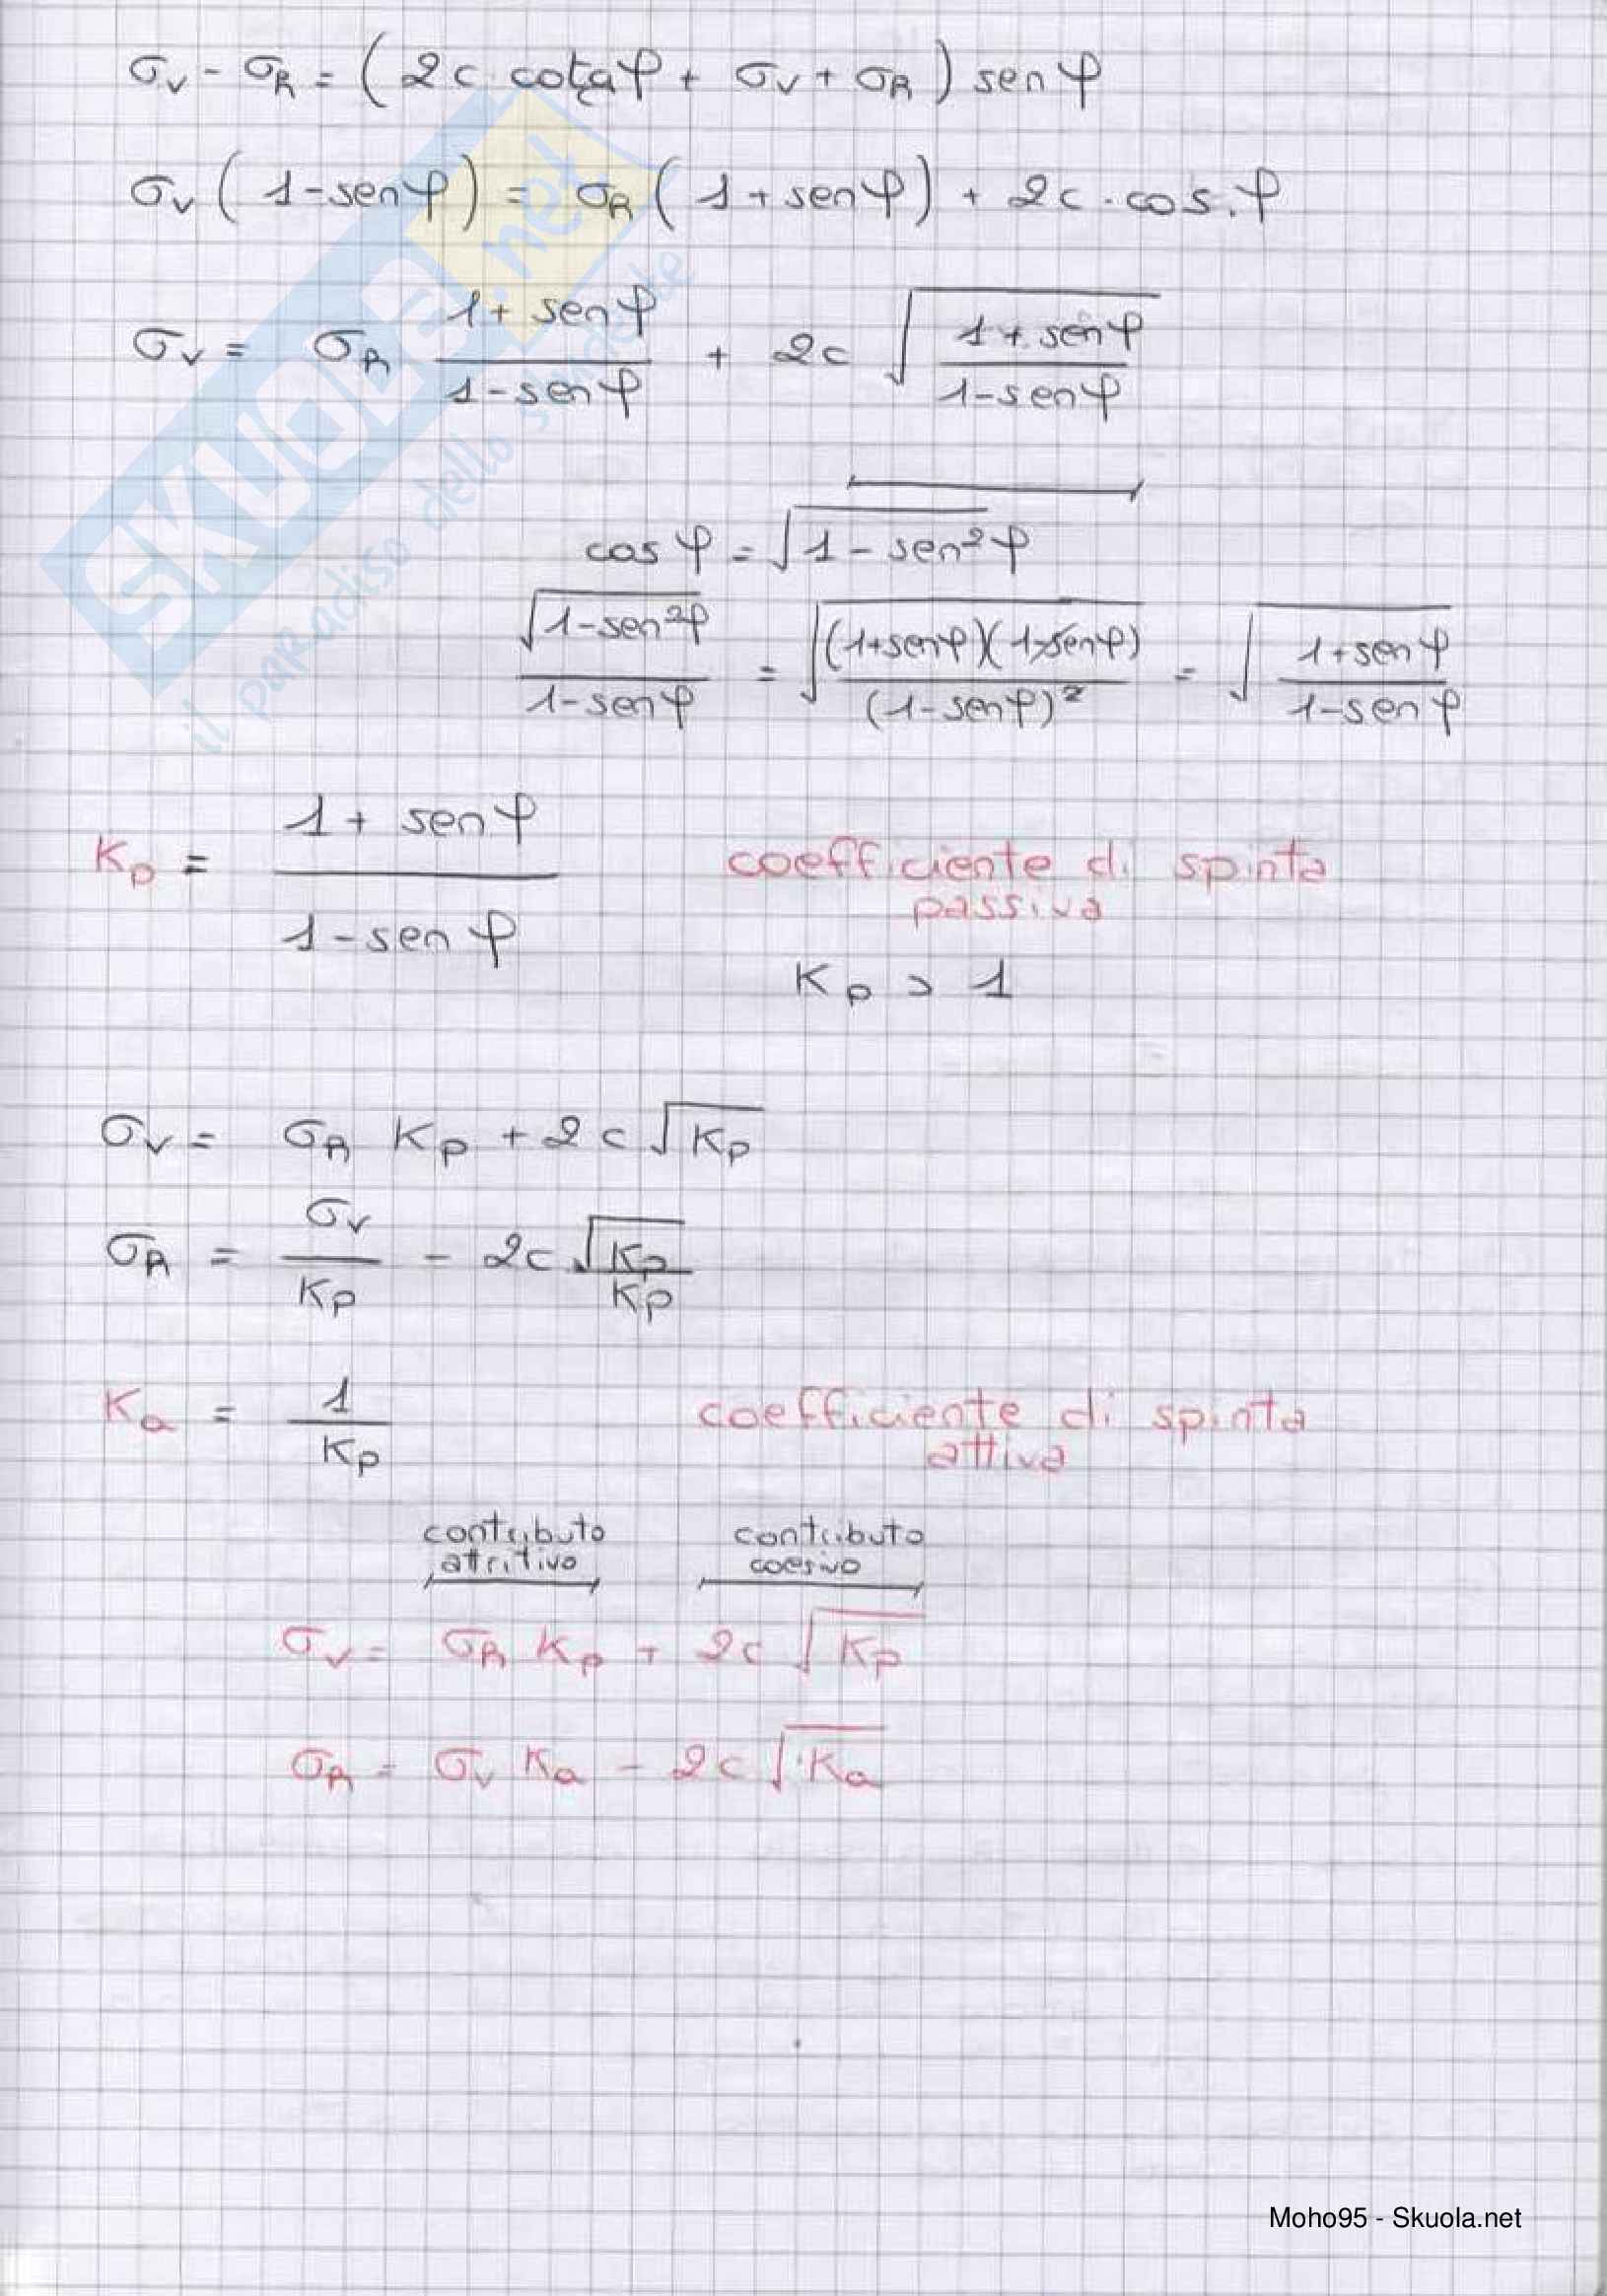 σv - σR = (2c cotgφ + σv + σR) sen φ
σv (1-senφ) = σR (1+senφ) + 2c · cos·φ
σv = σR (1+ senφ)/(1-senφ) + 2c √((1+senφ)/(1-senφ))
cos φ = √(1 - sen²φ)
√(1-sen²φ)/(1-senφ) = √((1+senφ)(1-senφ)/(1-senφ)²) = √((1+senφ)/(1-senφ))
Kp = (1 + sen φ)/(1-sen φ)
coefficiente di spinta
passiva
Kp > 1
σv = σR Kp + 2c √Kp
σR = σv/Kp - 2c √Kp/Kp
Ka = 1/Kp
coefficiente di spinta
attiva
contributo attritivo
contributo coesivo
σv = σR Kp + 2c √Kp
σR = σv Ka - 2c √Ka
SKUOLA.net
il paradiso dello studente
Moho95 - Skuola.net